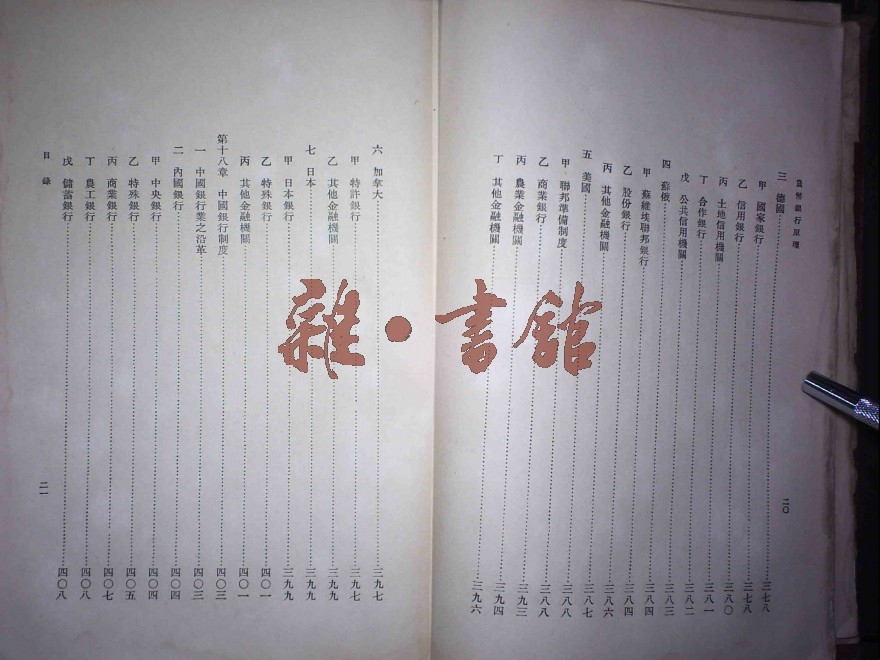 貨幣銀行原理
三 德國……三七八
甲 國家銀行……三七八
乙 信用銀行……三八〇
丙 土地信用機關……三八一
丁 合作銀行……三八二
戊 公共信用機關……三八三
四 蘇俄……三八四
甲 蘇維埃聯邦銀行……三八四
乙 股份銀行……三八六
丙 其他金融機關……三八七
五 美國……三八八
甲 聯邦準備制度……三八八
乙 商業銀行……三九三
丙 農業金融機關……三九四
丁 其他金融機關……三九六
二〇
六 加拿大……三九七
甲 特許銀行……三九七
乙 其他金融機關……三九九
七 日本……三九九
甲 日本銀行……三九九
乙 特殊銀行……四〇一
丙 其他金融機關……四〇一
第十八章 中國銀行制度……四〇三
一 中國銀行業之沿革……四〇三
二 內國銀行……四〇四
甲 中央銀行……四〇四
乙 特殊銀行……四〇五
丙 商業銀行……四〇七
丁 農工銀行……四〇八
戊 儲蓄銀行……四〇八
目錄
二一
雜·書館